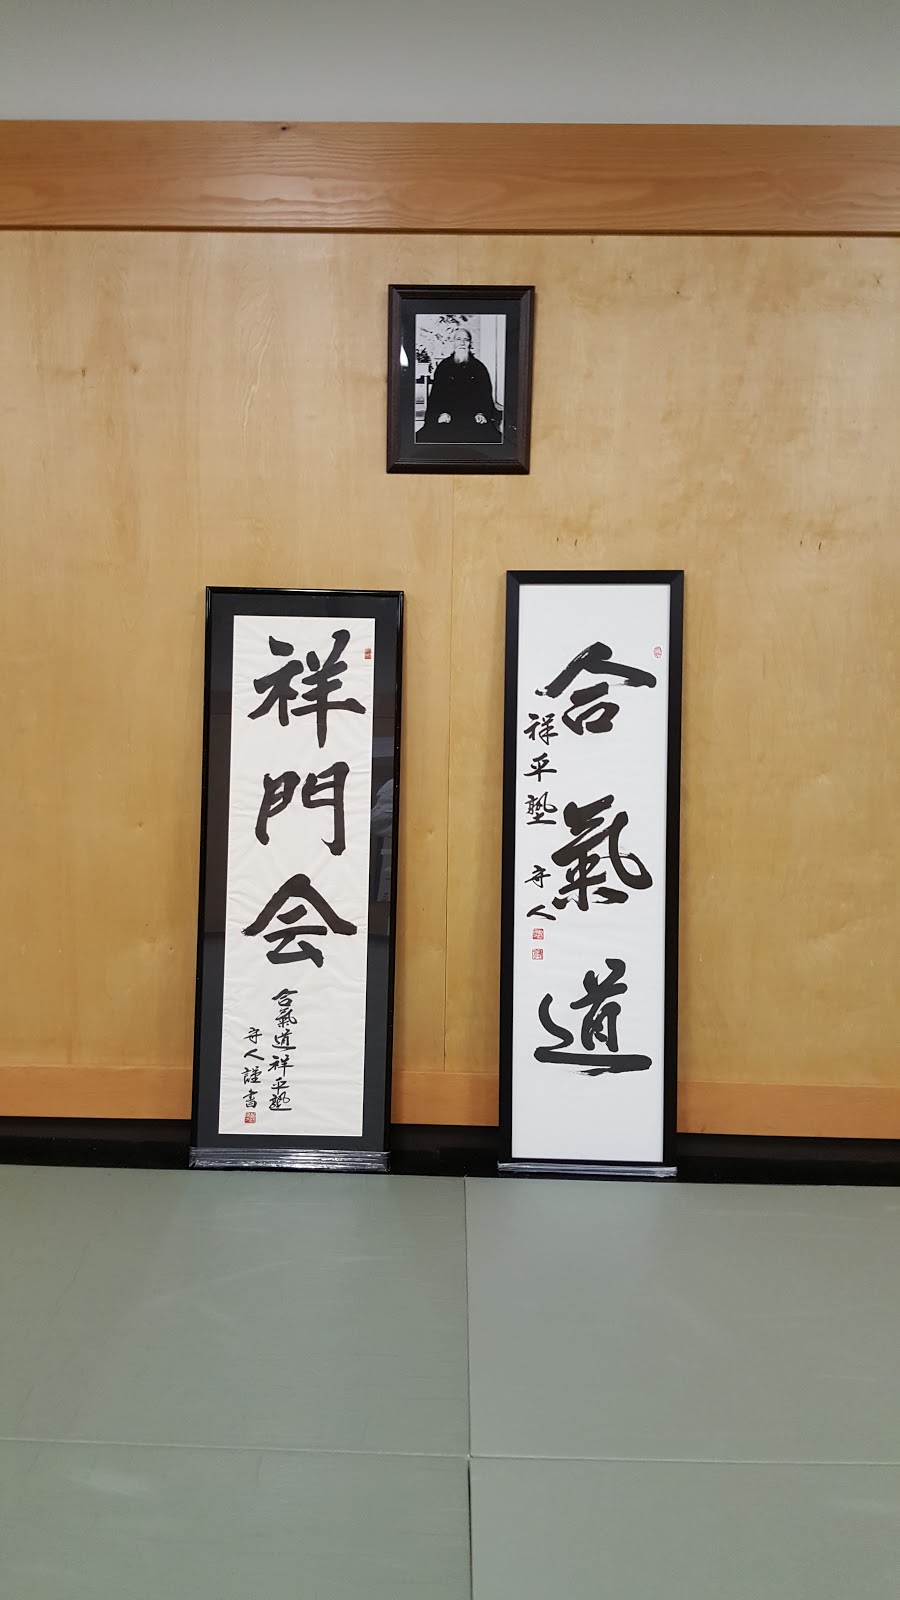 祥門会
合氣道祥平塾
守人謹書
合氣道
祥平塾 守人